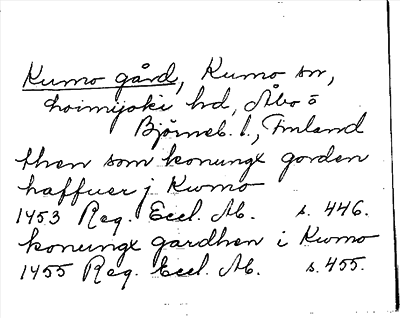 Kumo gård, Kumo sn,
Loimijoki hd, Åbo o
Björneb. l., Finland
then som konungx gorden
haffuer j Kwmo
1453 Reg. Eccl. Ab. s. 446.
konungx gardhen i Kwmo
1455 Reg. Eccl. Ab. s. 455.